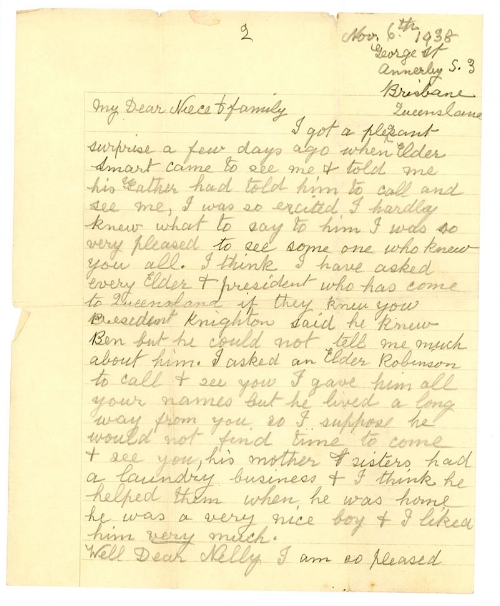 2
Nov. 6.th 1938
George St
Annerley S. 3
Brisbane
Queensland
My Dear Niece & family
I got a pleasant
surprise a few days ago when Elder
Smart came to see me & told me
his Father had told him to call and
see me, I was so excited I hardly
knew what to say to him I was so
very pleased to see some one who knew
you all. I think I have asked
every Elder & president who has come
to Queensland if they knew you
President Knighton said he knew
Ben but he could not tell me much
about him. I asked an Elder Robinson
to call & see you I gave him all
your names but he lived a long
way from you so I suppose he
would not find time to come
& see you, his mother & sisters had
a laundry business & I think he
helped them when he was home
he was a very nice boy & I liked
him very much.
Well Dear Nelly I am so pleased